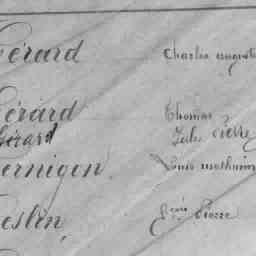 Gérard Charles auguste
Gérard Thomas
Gérard Jules Pierre
ernigon Louis mathurin
eslin Louis Pierre